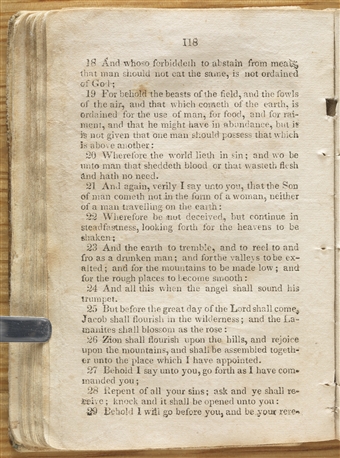 118
18 And whoso forbiddeth to abstain from meats,
that man should not eat the same, is not ordained
of God;
19 For behold the beasts of the field, and the fowls
of the air, and that which cometh of the earth, is
ordained for the use of man, for food, and for rai-
ment, and that he might have in abundance, but it
is not given that one man should possess that which
is above another:
20 Wherefore the world lieth in sin; and wo be
unto man that sheddeth blood or that wasteth flesh
and hath no need.
21 And again, verily I say unto you, that the Son
of man cometh not in the form of a woman, neither
of a man travelling on the earth:
22 Wherefore be not deceived, but continue in
steadfastness, looking forth for the heavens to be
shaken;
23 And the earth to tremble, and to reel to and
fro as a drunken man; and for the valleys to be ex-
alted; and for the mountains to be made low; and
for the rough places to become smooth:
24 And all this when the angel shall sound his
trumpet.
25 But before the great day of the Lord shall come,
Jacob shall flourish in the wilderness; and the La-
manites shall blossom as the rose:
26 Zion shall flourish upon the hills, and rejoice
upon the mountains, and shall be assembled togeth-
er unto the place which I have appointed.
27 Behold I say unto you, go forth as I have com-
manded you;
28 Repent of all your sins; ask and ye shall re-
ceive; knock and it shall be opened unto you:
29 Behold I will go before you, and be your rere-